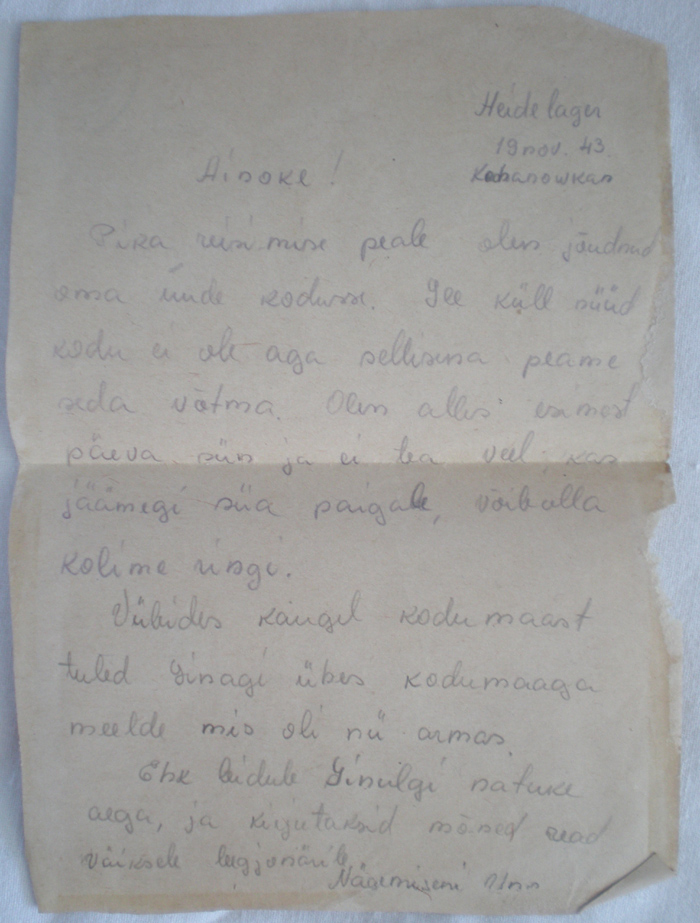 Heidelager
19 nov. 43.
Ainoke!
Pika reisimise peale olen jõudnud
oma uude kodusse. See küll nüüd
kodu ei ole aga sellisena peame
seda võtma. Olen alles esimest
päeva siin ja ei tea veel, kas
jäämegi siia paigale, võibolla
kolime ringi.
Viibides kaugel kodumaast
tuled Sinagi ühes kodumaaga
meelde mis oli nii armas.
Ehk leidub Sinulgi natuke
aega, ja kirjutaksid mõned read
väiksele leegionärile.
Nägemiseni